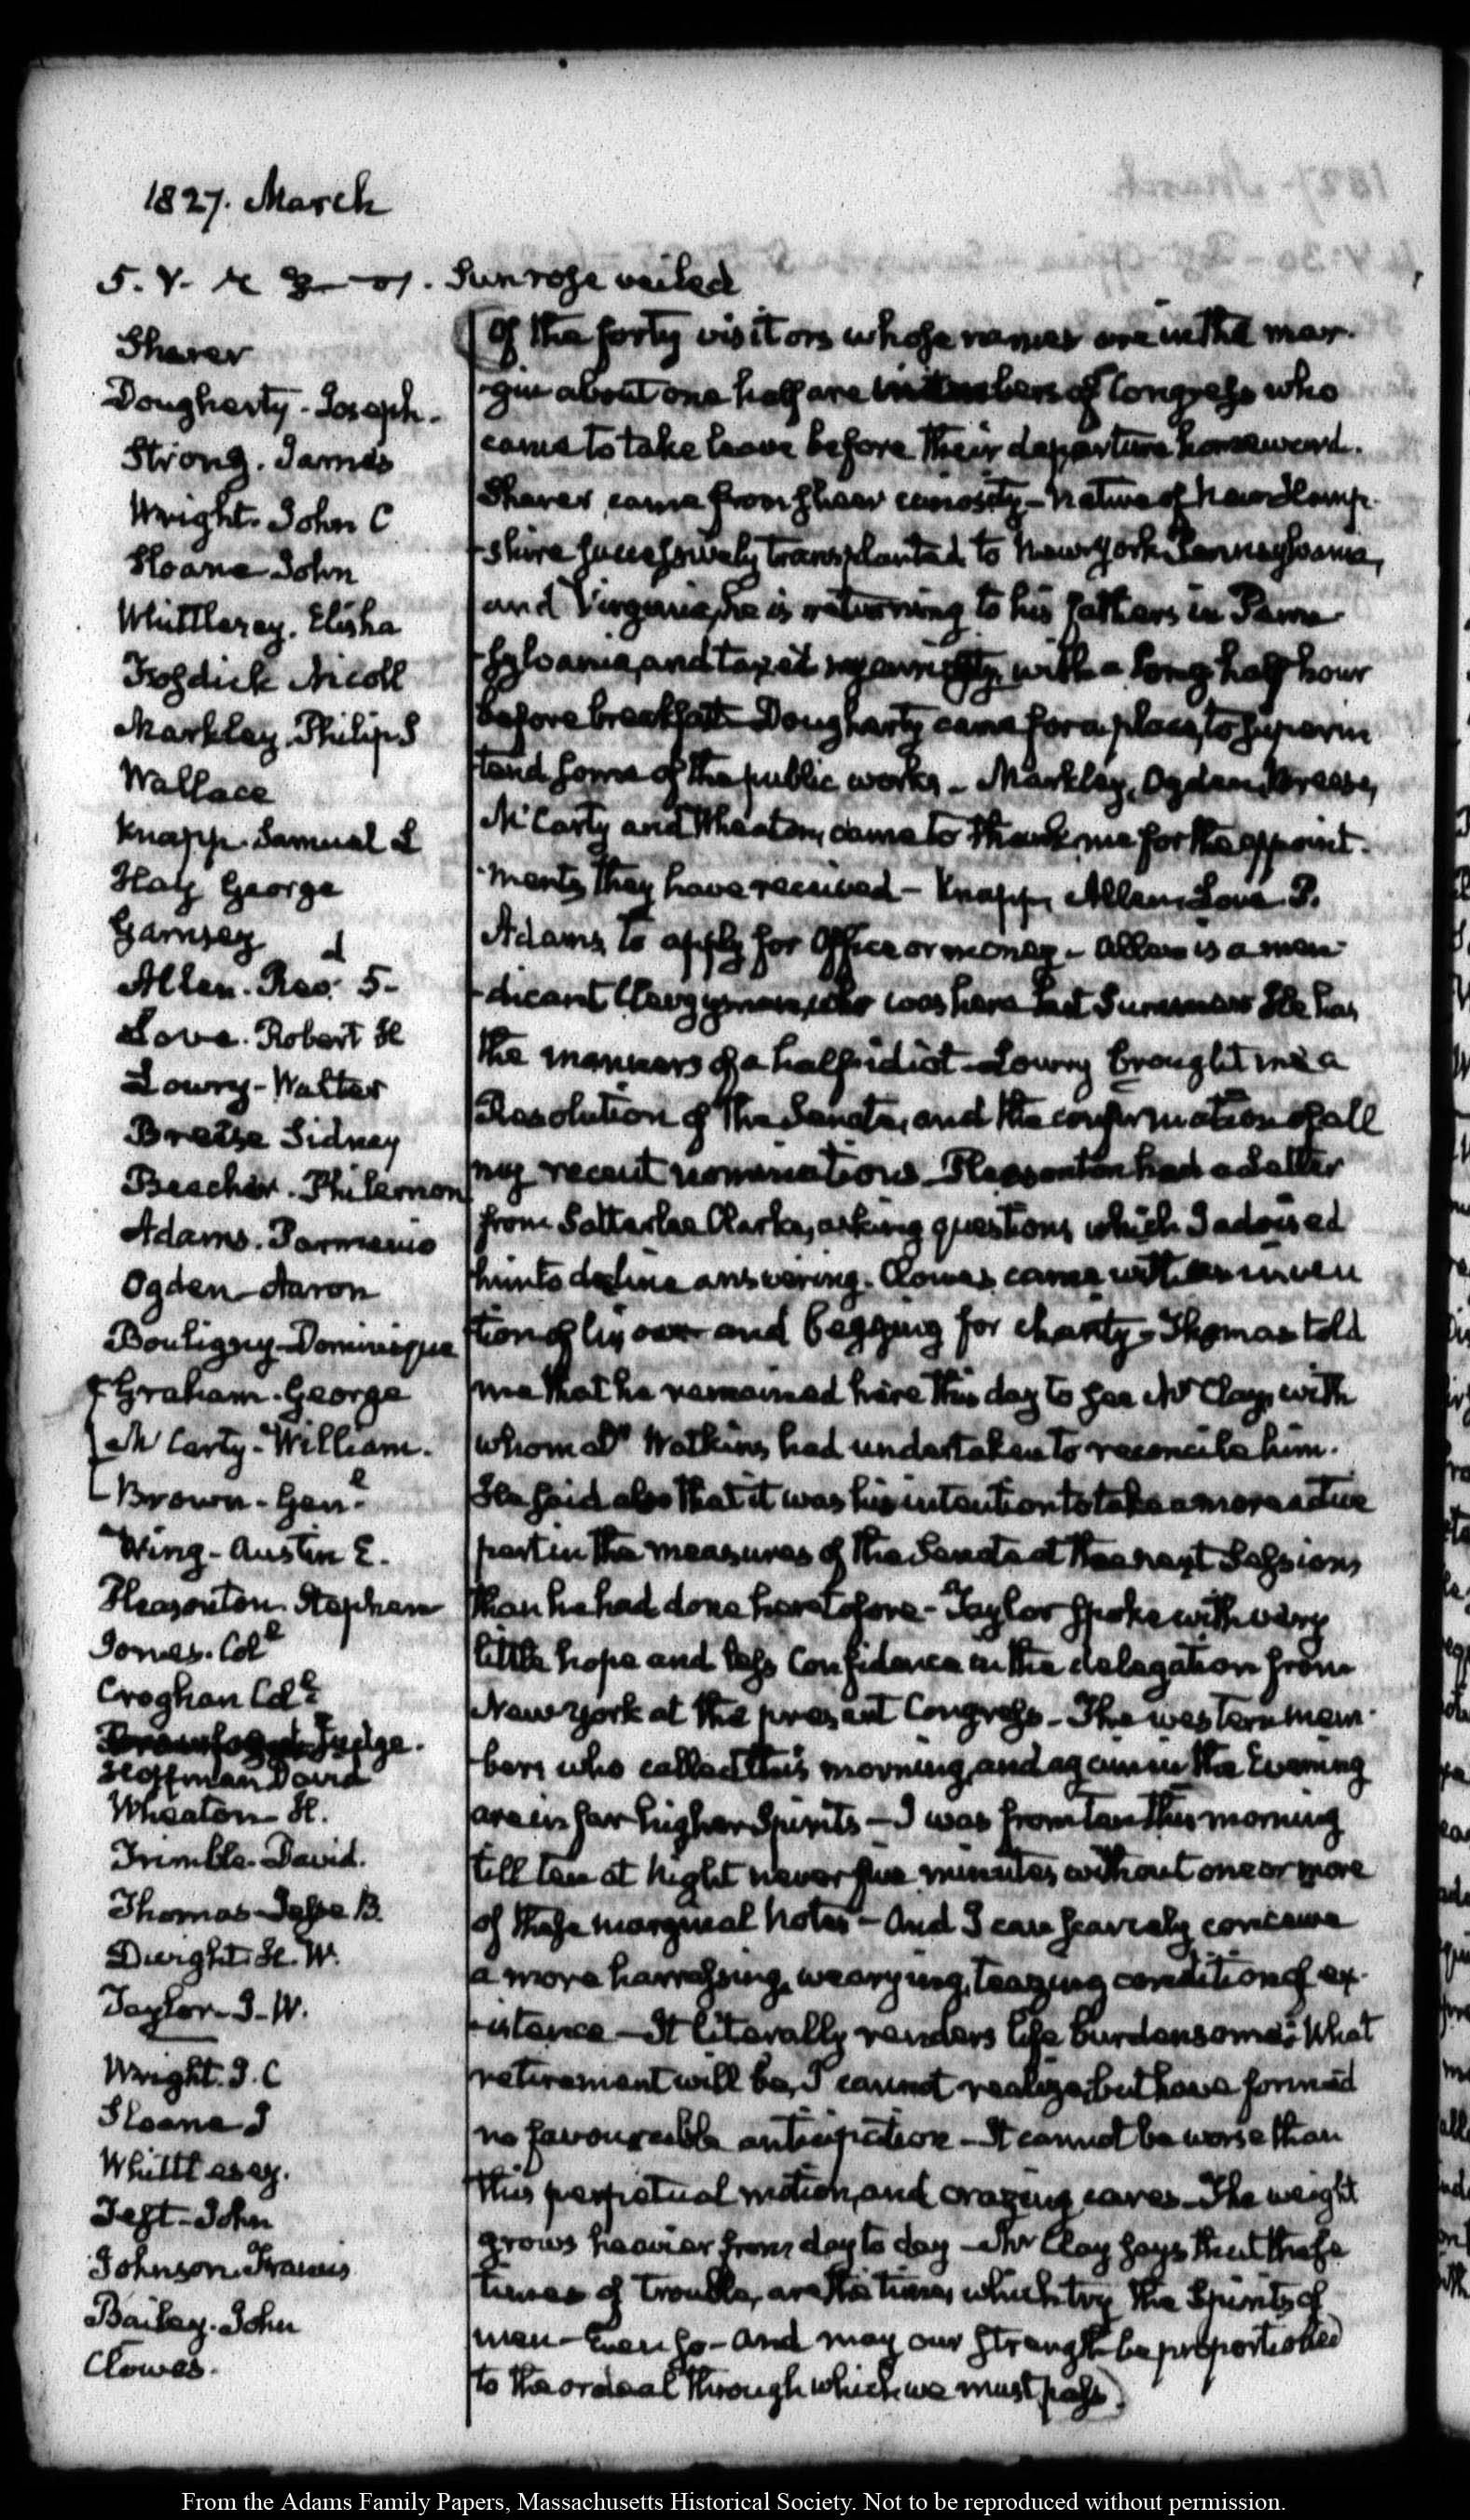 1827. March
5. V. Sun rose veiled
Sharer
Dougherty. Joseph.
Strong. James
Wright. John C
Sloane John
Whittlesey. Elisha
Fosdick Nicoll
Markley. Philip S
Wallace
Knapp. Samuel L
Hay George
Garnsey
Allen. Revd. 5-
Love. Robert H
Lowry-Walter
Breese Sidney
Beecher. Philemon
Adams. Parmenio
Ogden-Aaron
Bouligny-Dominique
Graham. George
McCarty-William.
Brown-Genl.
Wing-Austin E.
Pleasonton. Stephen
Jones. Coll
Croghan Coll
Judge.
Hoffman David
Wheaton-H.
Trimble. David.
Thomas-Jesse B.
Dwight. H. W.
Taylor-J-W.
Wright. J. C
Sloane J
Whittlesey.
Test-John
Johnson. Francis
Bailey. John
Clowes.
Of the forty visitors whose names are in the mar-
-gin about one half are members of Congress who
came to take leave before their departure homeward.
Sharer came from sheer curiosity-Native of New Hamp-
-shire successively transplanted to New York, Pennsylvania,
and Virginia, he is returning to his fathers in Penn
-sylvania, and taxed my with a long half hour
before breakfast-Dougharty came for a place, to superin
tend some of the public works-Markley, Ogden, Breese,
McCarty and Wheaton, came to thank me for the appoint-
-ments they have received-Knapp, Allen, Love. P.
Adams, to apply for Office or money-Allen is a men-
-dicant Clergyman, who was here last Summer He has
the manners of a half idiot-Lowry brought me a
Resolution of the Senate, and the confirmation of all
my recent nominations-Pleasonton had a Letter
from Satterlee Clarke, asking questions which I advised
him to decline answering. Clowes came with an inven
tion of his own and begging for charity-Thomas told
me that he remained here this day to see Mr Clay, with
whom Dr Watkins had undertaken to reconcile him.
He said also that it was his intention to take a more active
part in the measures of the Senate at the next Sessions
than he had done heretofore-Taylor spoke with very
little hope and less Confidence in the delegation from
New York at the present Congress-The western mem-
-bers who called this morning, and again in the Evening
are in far higher Spirits-I was from ten this morning
till ten at Night never five minutes without one or more
of these marginal Notes-And I can scarcely conceive
a more harrassing, wearying, teazing condition of ex-
-istence-It literally renders life burdensome. What
retirement will be, I cannot realize, but have formed
no favourable anticipation-It cannot be worse than
this perpetual motion, and crazing cares-The weight
grows heavier from day to day-Mr Clay says that these
times of trouble, are the times which try the Spirits of
men-Even so-And may our strength be proportioned
to the ordeal through which we must pass.
From the Adams Family Papers, Massachusetts Historical Society. Not to be reproduced without permission.